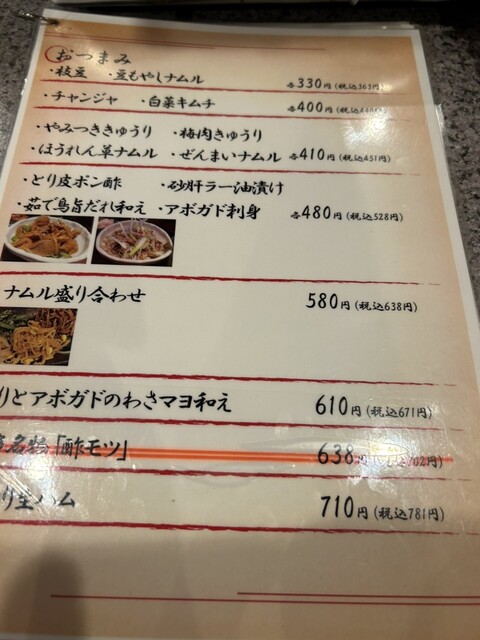 おつまみ
・枝豆 ・豆もやしナムル 各330円(税込363円)
・チャンジャ ・白菜キムチ 各400円(税込440円)
・やみつききゅうり ・梅肉きゅうり
・ほうれん草ナムル ・ぜんまいナムル 各410円(税込451円)
・とり皮ポン酢 ・砂肝ラー油漬け
・茹で鳥旨だれ和え ・アボガド刺身 各480円(税込528円)
ナムル盛り合わせ 580円(税込638円)
りとアボガドのわさマヨ和え 610円(税込671円)
名物「酢モツ」 638円 702円)
り生ハム 710円(税込781円)